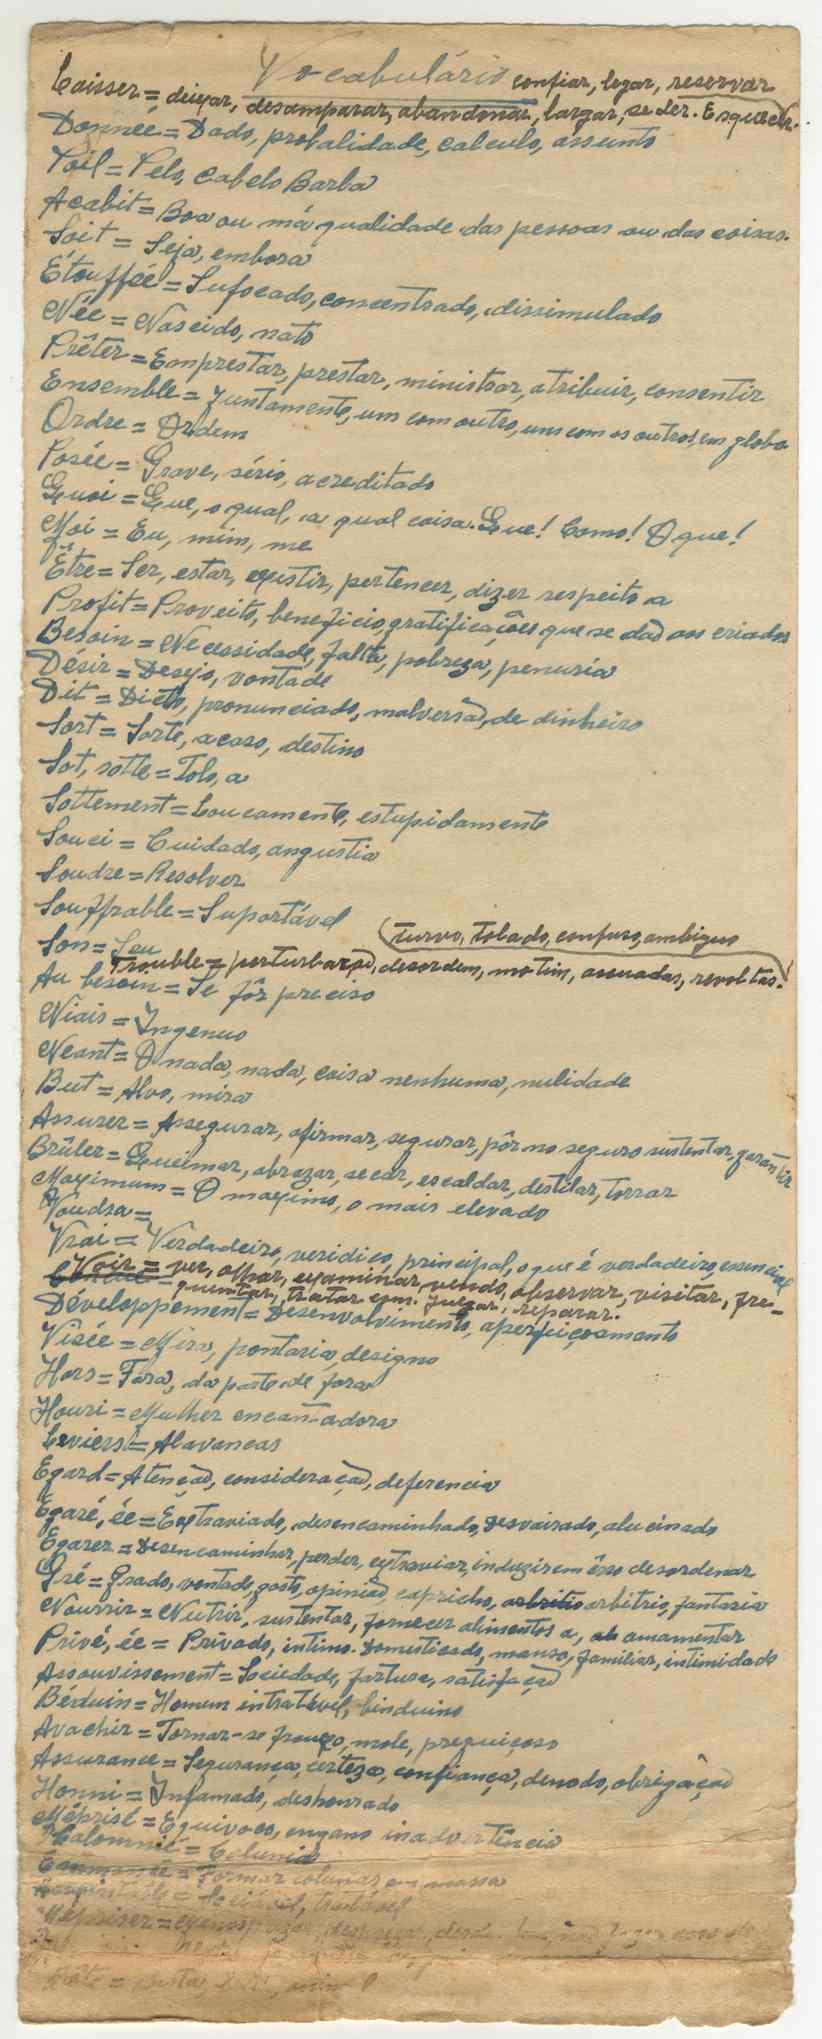 Vocabulário
confiar, legar, reservar
Laisser = deixar, desamparar, abandonar, largar, se der. Esquecer.
Donnée = Dado, probalidade, calculo, assunto
Poil = Pelo, cabelo Barba
Acabit = Boa ou má qualidade das pessoas ou das coisas.
Soit = Seja, embora
Étouffée = Sufocado, concentrado, dissimulado
Née = Nascido, nato
Prêter = Emprestar, prestar, ministrar, atribuir, consentir
Ensemble = Juntamente, um com outro, uns com os outros, em globo
Ordre = Ordem
Posée = Grave, sério, acreditado
Quoi = Que, o qual, a qual coisa. Que! Como! O que!
Moi = Eu, mim, me
Être = Ser, estar, existir, pertencer, dizer respeito a
Profit = Proveito, beneficio, gratificações que se dão aos criados
Besoin = Necessidade, falta, pobreza, penuria
Désir = Desejo, vontade
Dit = Dicto, pronunciado, malversão, de dinheiro
Sort = Sorte, acaso, destino
Sot, sotte = Tolo, a
Sottement = Loucamente, estupidamente
Souci = Cuidado, angustia
Soudre = Resolver
Souffrable = Suportável
turvo, tobado, confuso, ambiguo
Son = Seu
Trouble = perturbação, desordem, motim, assuadas, revoltas.
Au besoin = Se fôr preciso
Niais = Ingenuo
Neant = O nada, nada, coisa nenhuma, nulidade
But = Alvo, mira
Assurer = Assegurar, afirmar, segurar, pôr no seguro sustentar, garantir
Brûler = Queimar, abrazar, secar, escaldar, destilar, torrar
Maximum = O maximo, o mais elevado
Voudra =
Vrai = Verdadeiro, veridico, principal, o que é verdadeiro, essencial
Voir = ver, olhar, examinar, vendo, observar, visitar, fre-
quentar, tratar com. Julgar, reparar.
Développement = Desenvolvimento, aperfeiçoamento
Visée = Mira, pontaria, designo
Hors = Fóra, da parte de fora
Houri = Mulher encantadora
Leviers = Alavancas
Egard = Atenção, consideração, deferencia
Egaré, ée = Extraviado, desencaminhado, Desvairado, alucinado
Egarer = Desencaminhar, perder, extraviar, induzir em êrro desordenar
Gré = Grado, vontade, gosto, opinião, capricho, arbitrio, fantazia
Nourrir = Nutrir, sustentar, fornecer alimentos a, amamentar
Privé, ée = Privado, intimo. Domesticado, manso, familiar, intimidade
Assouvissement = Saciedade, fartura, satisfação
Bérduin = Homem intratável, binduino
Avachir = Tornar-se frouxo, mole, preguiçoso
Assurance = Segurança, certeza, confiança, denodo, obrigação
Honni = Infamado, deshonrado
Méprise = Equivoco, engano inadvertência
Calomnié = Calunia
= Formar colunas em massa
Mépriser =